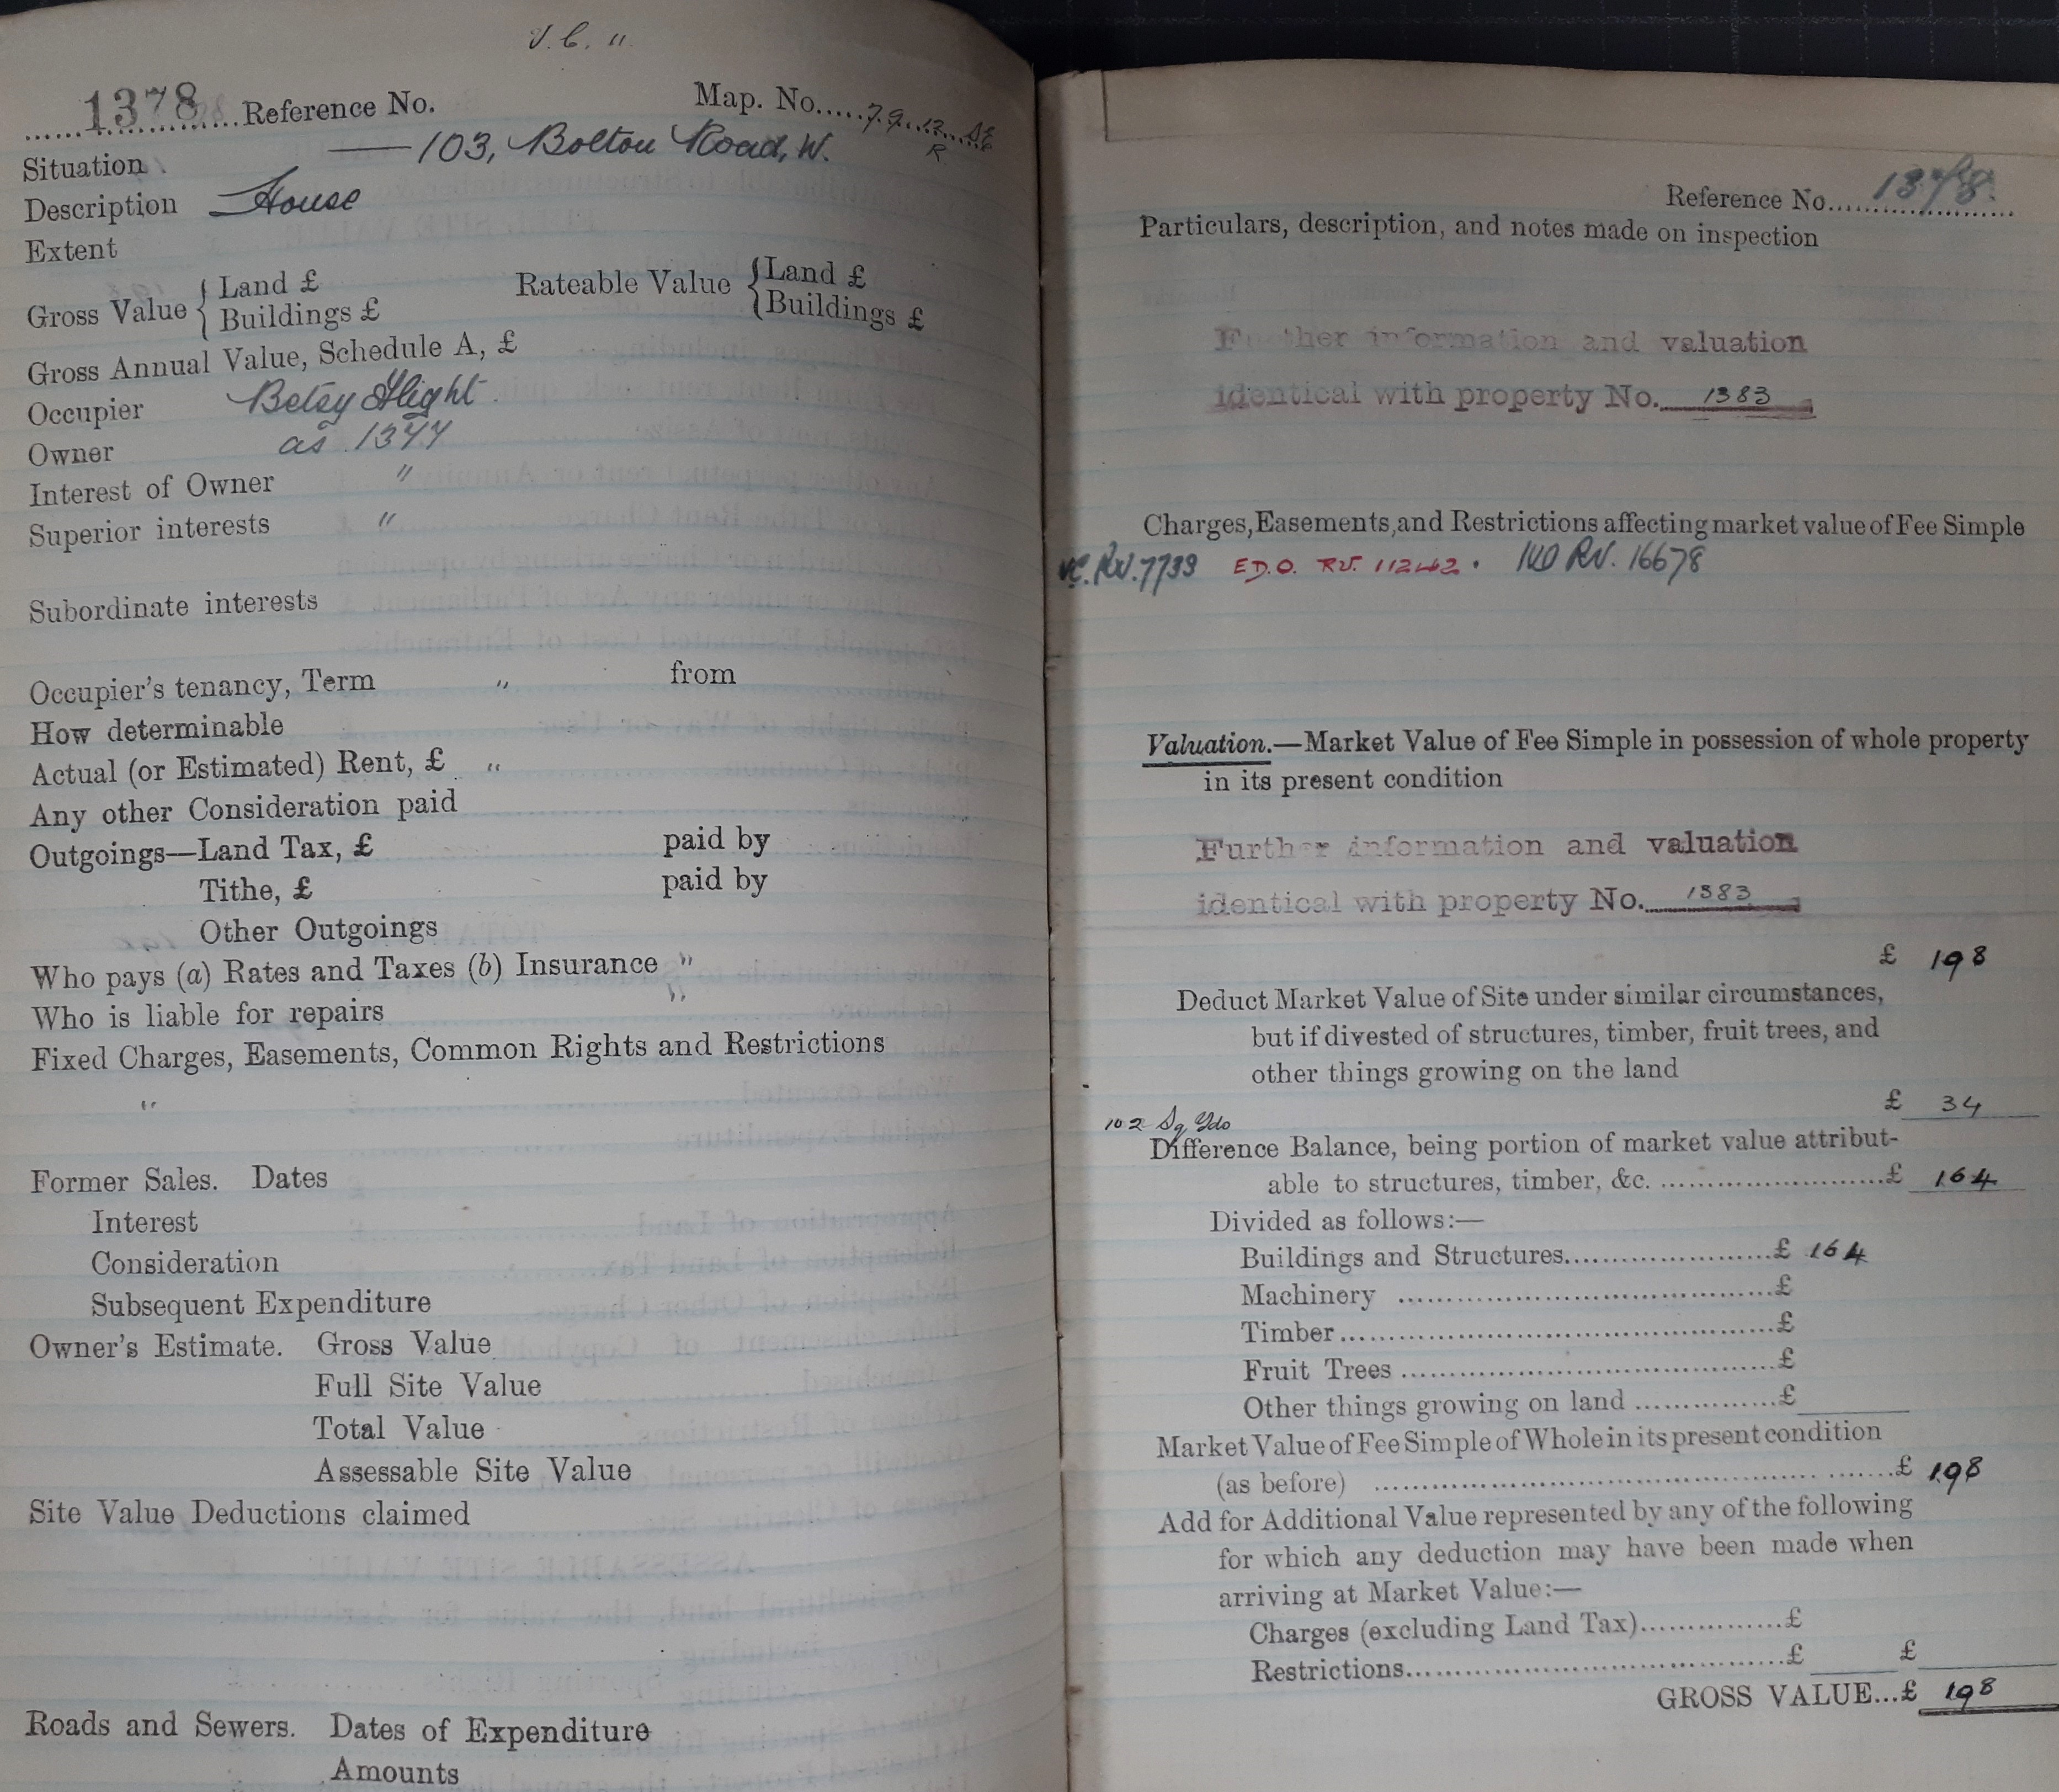 V.C. "
1378 Reference No. Map. No. 79.12 SE
R
Situation — 103, Bolton Road, W.
Description House
Extent
Gross Value { Land £
Buildings £
Rateable Value { Land £
Buildings £
Gross Annual Value, Schedule A, £
Occupier Betsy Slight
Owner as 1377
Interest of Owner "
Superior interests "
Subordinate interests
Occupier's tenancy, Term " from
How determinable
Actual (or Estimated) Rent, £ "
Any other Consideration paid
Outgoings—Land Tax, £ paid by
Tithe, £ paid by
Other Outgoings
Who pays (a) Rates and Taxes (b) Insurance "
Who is liable for repairs "
Fixed Charges, Easements, Common Rights and Restrictions
"
Former Sales. Dates
Interest
Consideration
Subsequent Expenditure
Owner's Estimate. Gross Value
Full Site Value
Total Value
Assessable Site Value
Site Value Deductions claimed
Roads and Sewers. Dates of Expenditure
Amounts
Reference No. 1378
Particulars, description, and notes made on inspection
Further information and valuation
identical with property No. 1383
Charges, Easements, and Restrictions affecting market value of Fee Simple
VC. RV. 7739 E.D.O. RV. 11242. RV. 16678
Valuation.—Market Value of Fee Simple in possession of whole property
in its present condition
Further information and valuation
identical with property No. 1383
£ 198
Deduct Market Value of Site under similar circumstances,
but if divested of structures, timber, fruit trees, and
other things growing on the land
£ 34
102 Sq Yds
Difference Balance, being portion of market value attribut-
able to structures, timber, &c. £ 164
Divided as follows:—
Buildings and Structures £ 164
Machinery £
Timber £
Fruit Trees £
Other things growing on land £
Market Value of Fee Simple of Whole in its present condition
(as before) £ 198
Add for Additional Value represented by any of the following
for which any deduction may have been made when
arriving at Market Value:—
Charges (excluding Land Tax) £
Restrictions £ £
GROSS VALUE...£ 198